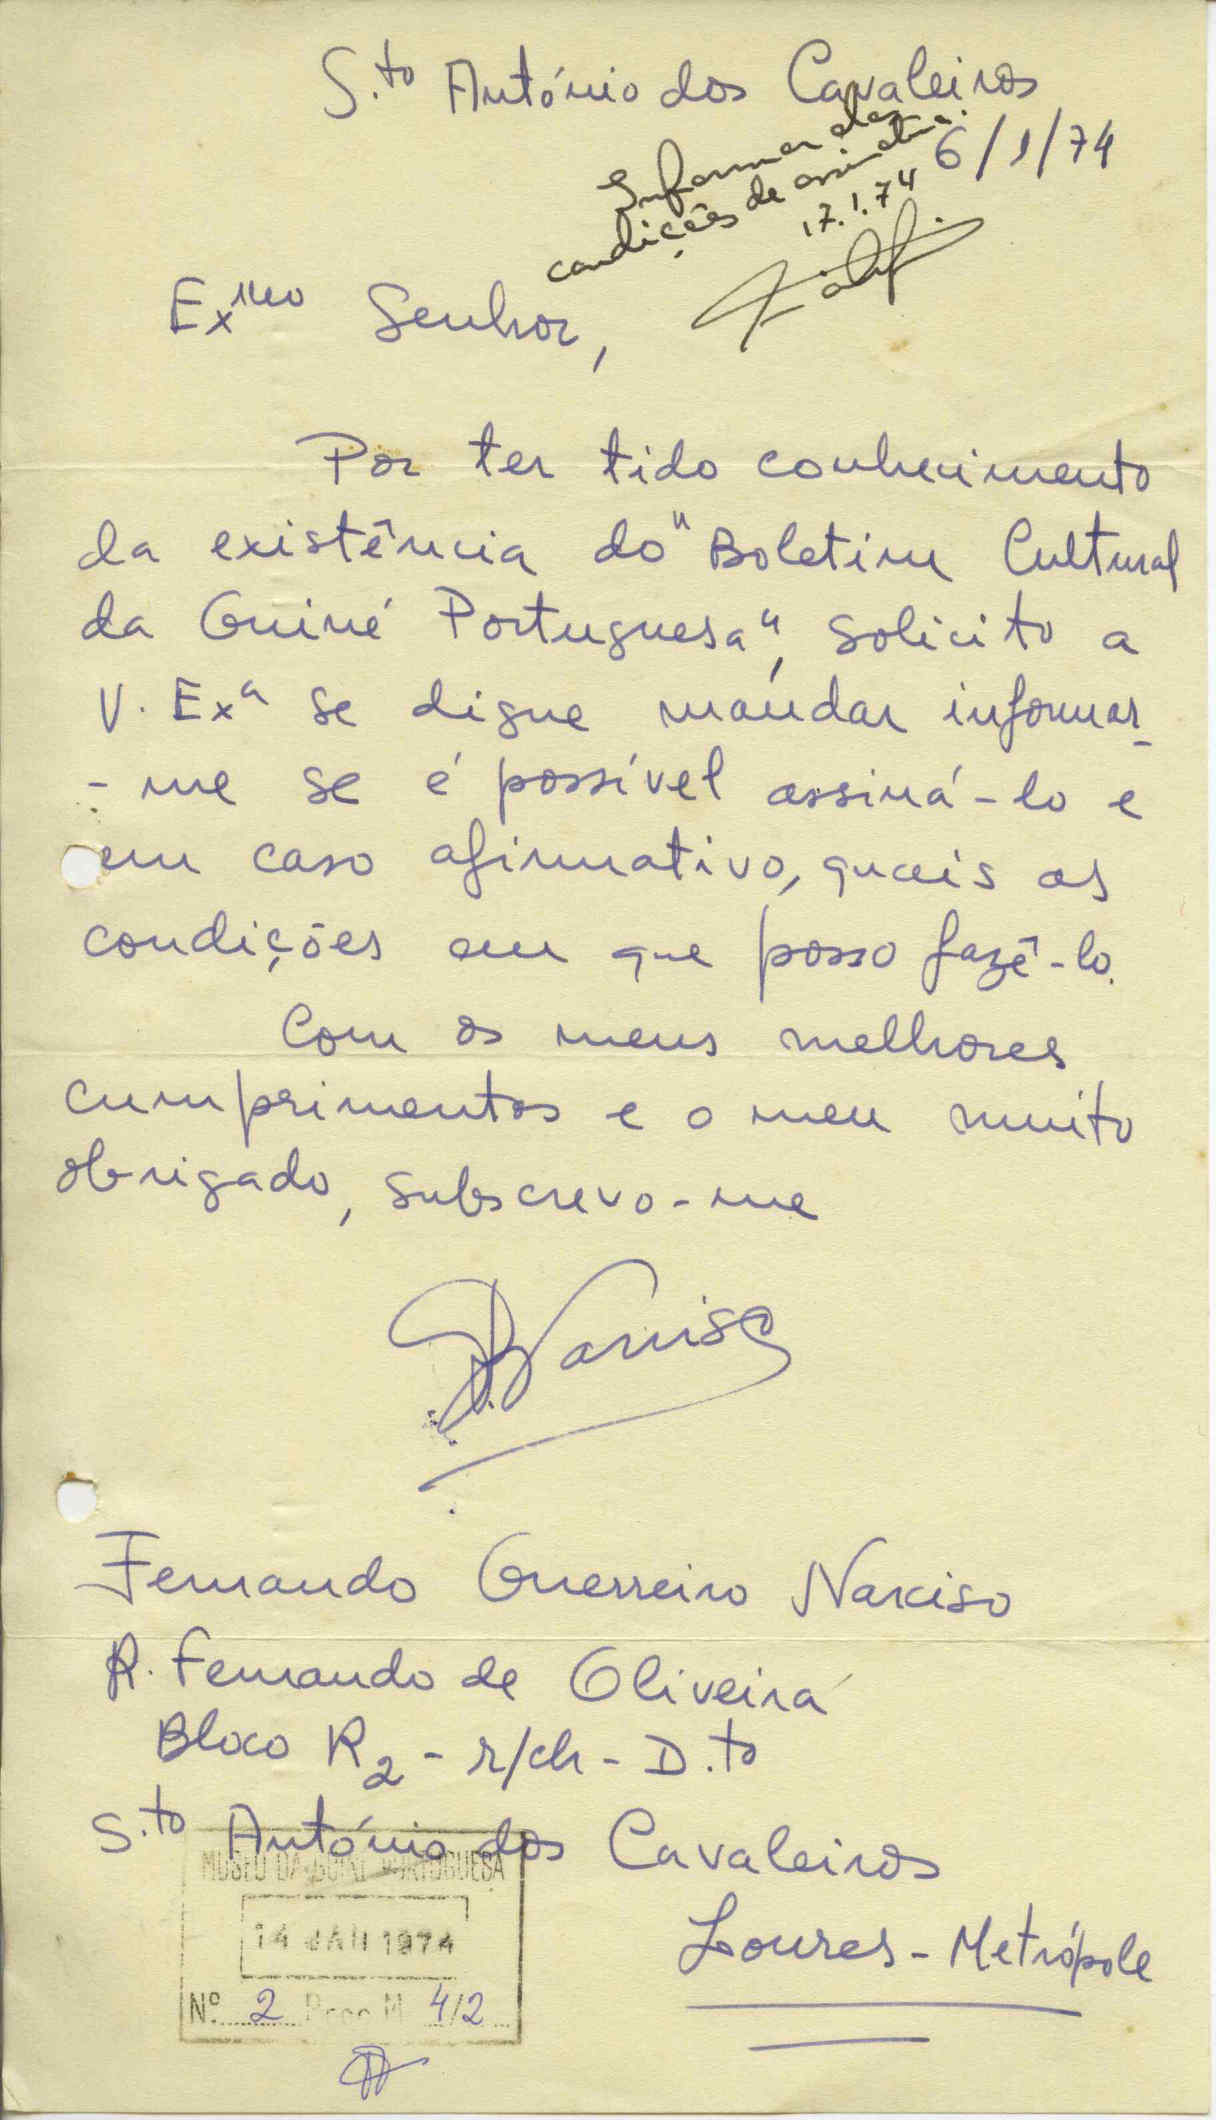 S.to António dos Cavaleiros
6/1/74
Informar das
condições de assinatura.
17.1.74
Exmo Senhor,
Por ter tido conhecimento
da existência do "Boletim Cultural
da Guiné Portuguesa", solicito a
V. Exª se digne mandar informar-
-me se é possível assiná-lo e
em caso afirmativo, quais as
condições em que posso fazê-lo.
Com os meus melhores
cumprimentos e o meu muito
obrigado, subscrevo-me
Narciso
Fernando Guerreiro Narciso
R. Fernando de Oliveira
Bloco R2 - r/ch - D.to
S.to António dos Cavaleiros
Loures - Metrópole
MUSEU DA GUINÉ PORTUGUESA
14 JAN 1974
Nº 2 Proc M 4/2